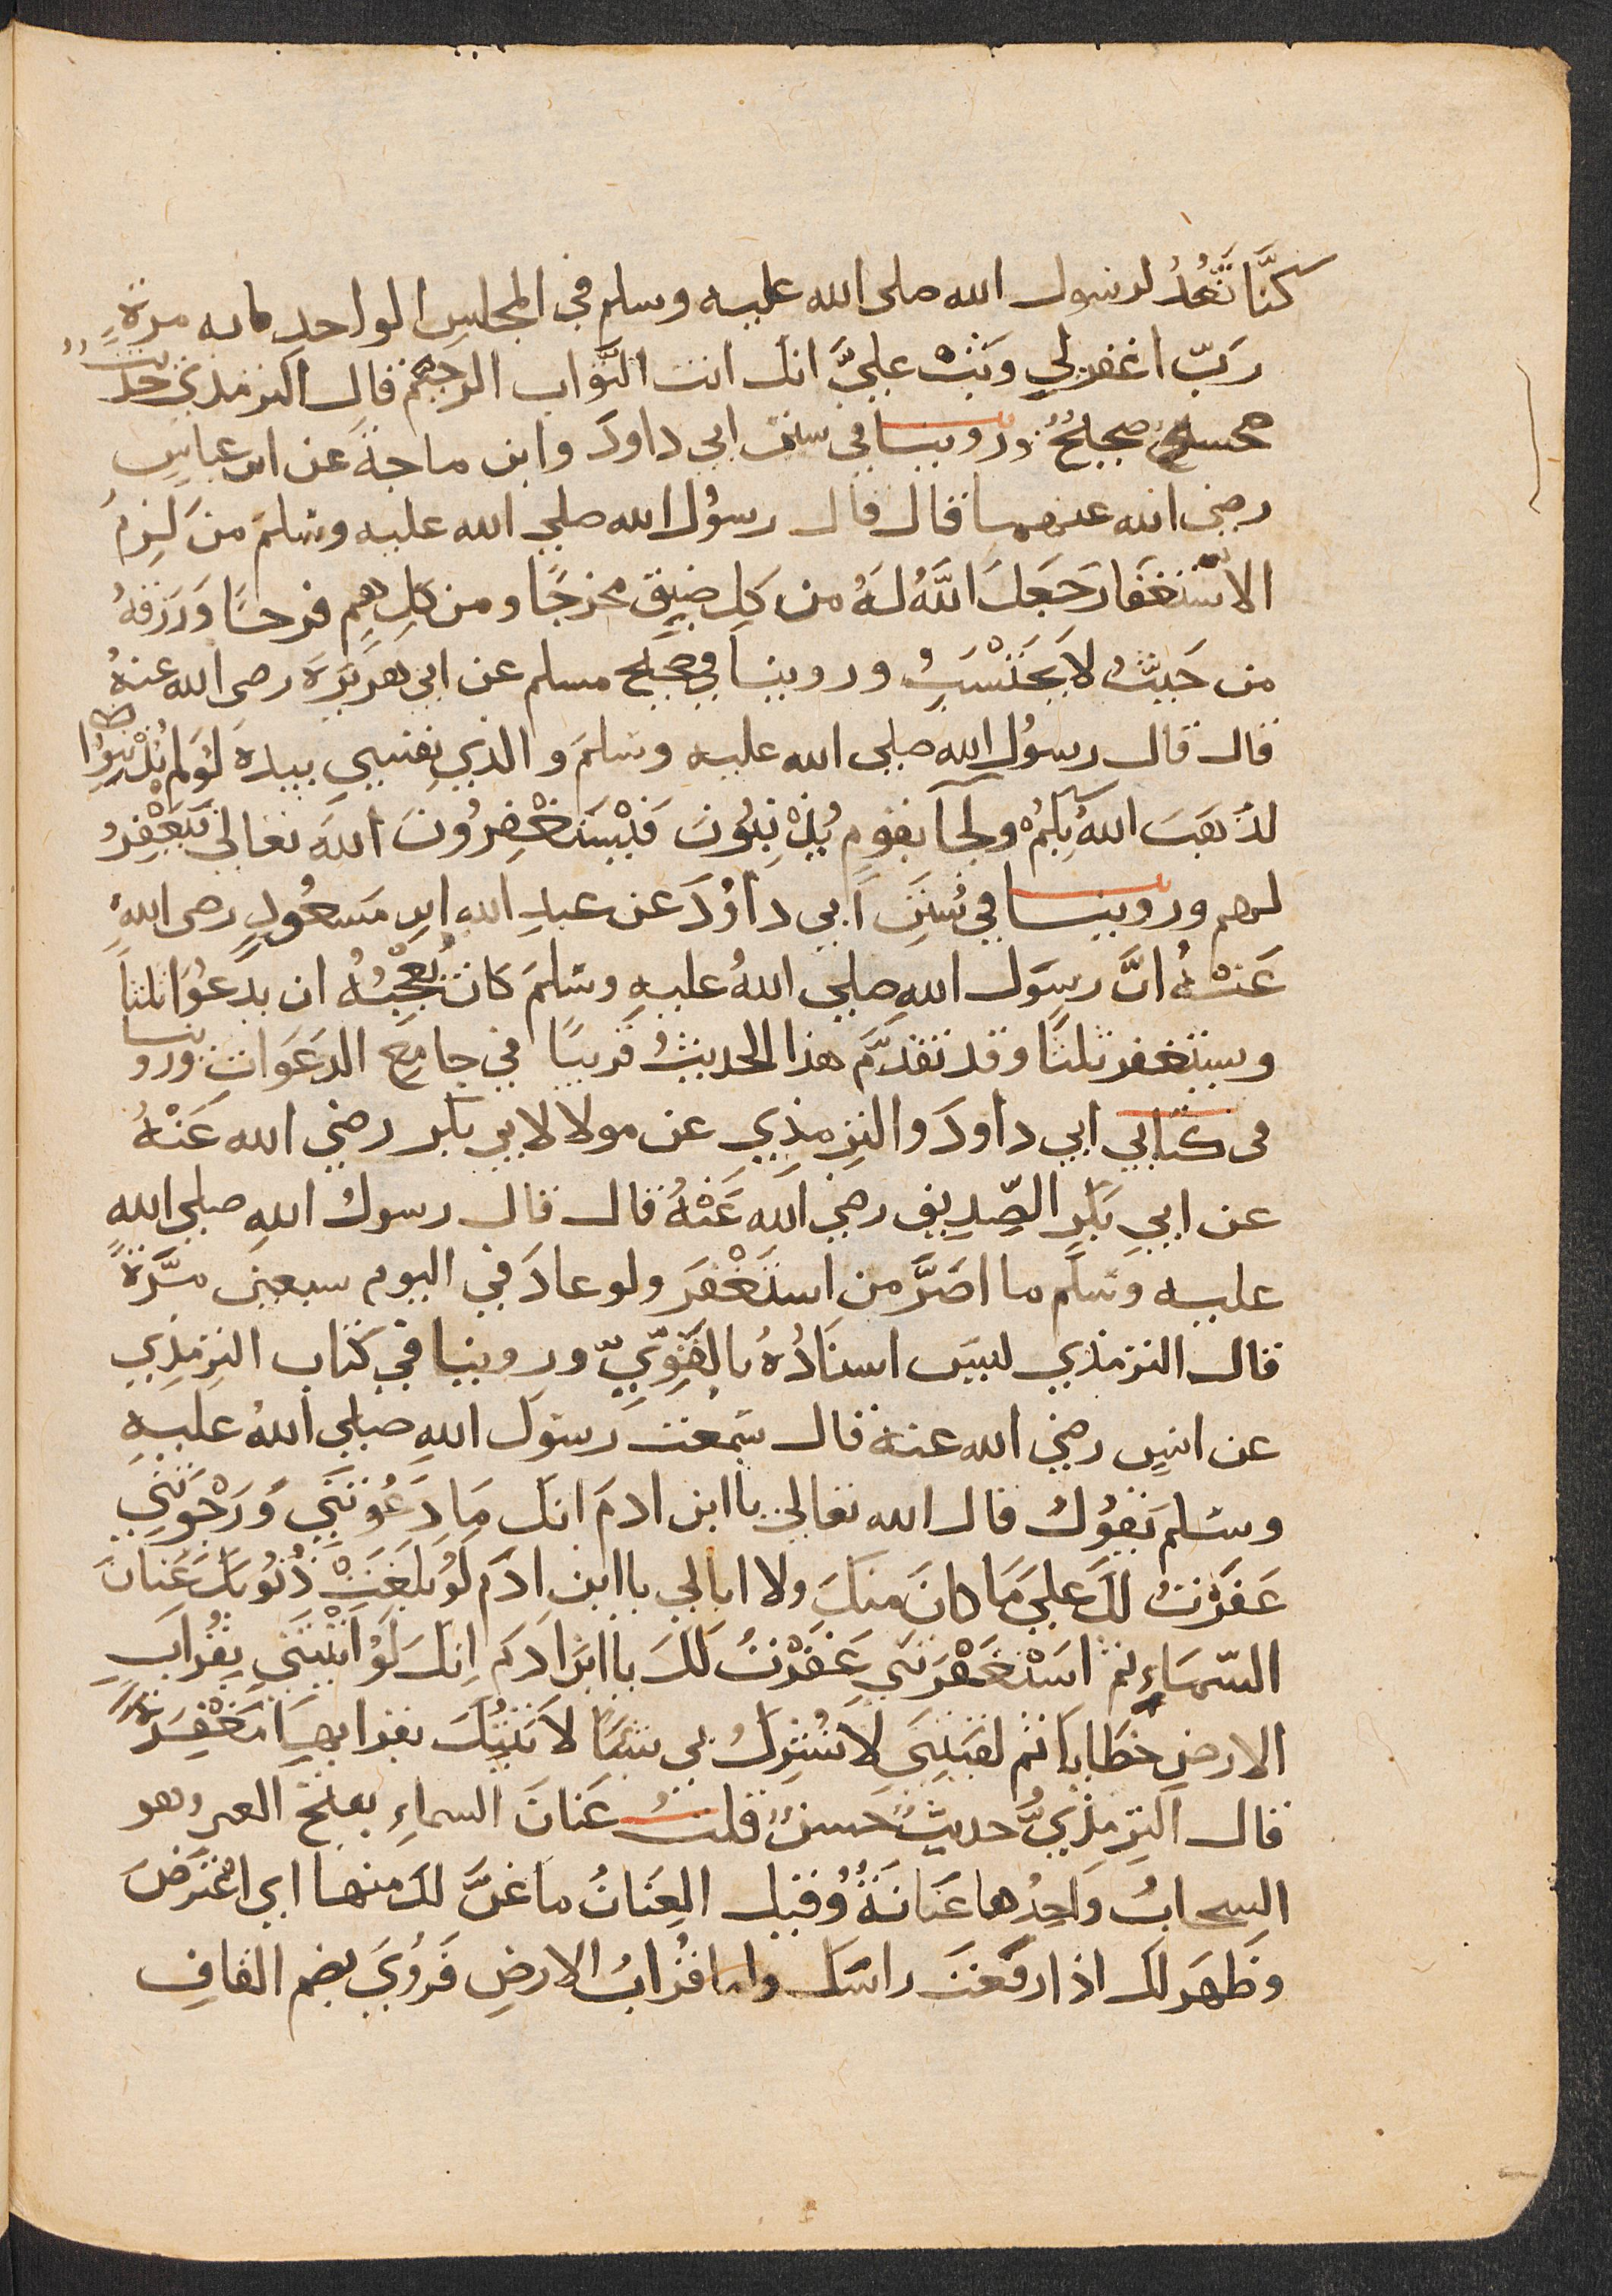 كنَّا نَعُدُّ لرسول الله صلى الله عليه وسلم في المجلس الواحد مايه مرةٍ
رَبّ اغفر لي وَتُبْ عليَّ انك انت التَّواب الرحيم قال الترمذي حديث
حسن صحيحٌ وروينا في سنن ابي داودَ وابن ماجةَ عن ابن عباسٍ
رضي الله عنهما قال قال رسوُل الله صلي الله عليه وسَلمَ من لَزِمَ
الاسْتغفَارَ جَعَلَ اللَّهُ لهُ من كلِ ضيقٍ مخرجًا ومن كلِ همٍ فرجًا وَرَزقهُ
من حَيثُ لا يَحْتَسَبِ وروينا في صحيح مسلم عن ابي هريرَة رضي الله عنهُ
قال قال رسوُل الله صلي الله عليه وسَلمَ والذي نفسي بيده لوَ لم تُذْنبوُا
لذَهَبَ اللهُ بِكمُ ولجآ بقومٍ يُذْنِبُونَ فَيْستَغْفِرُونَ اللهَ تعالي فيَغْفِرُ
لهم وروينا في سُنَنِ ابي داوُدَ عن عبدِ الله ابنِ مَسعُودٍ رضي اللهُ
عَنْهُ انَّ رسوَل اللهِ صلي اللهُ عليهِ وسَلمَ كانَ يُعْجِبُهُ ان يدعُوَا ثلثاً
ويستغفر ثلثًا وقد تقدَّمَ هذا الحديثُ قريبًا في جامِعِ الدعَوَاتِ وروينا
في كتابي ابي داودَ والترِمذِي عن مولا لابي بكر رضي الله عَنْهُ
عن ابي بَكرٍ الصِّدِيق رضي الله عَنْهُ قال قال رسولُ اللهِ صلي الله
عليه وسَلَّم ما اصَرَّ من استَغْفَرَ ولو عادَ في اليوم سبعين مَرَّةً
قال الترمذي ليسَ اسنَادُهُ بالقَوِيِّ وروينا في كتاب الترِمذِي
عن انسٍ رضي الله عنهُ قال سَمعت رسوَل اللهِ صلي اللهُ عليهِ
وسَلمَ يَقوُلُ قال الله تعالي يا ابن ادمَ انك مَا دَعَوْتَنيَ وَرَجْوتَنيِ
غَفَرْتُ لكَ عليَ مَا كانَ منكَ ولا ابالي يا ابن ادَم لَوُ بَلغَتْ ذُنوُبُكَ عَنانَ
السّمَاءِ ثم اسَتْغَفْرَتَنيِ غَفَرْتُ لَكَ يا ابنَ ادَم اِنكَ لَوُ اتْيتَنيِ بِقُرابِ
الارضِ خطَايا ثم لقيَتَنيَ لا تُشْرِكُ بي شيًا لا تيْتُكَ بقرابِهَا مَغْفِرَةً
قال الترِمذِيُّ حديثٌ حسنٌ قلتُ عَنانَ السماءِ بفتح العين وهو
السحابُ وَاحِدُها عَنانَةُ وُقيل العِنَانُ ما عَنَّ لكَ منها اي اعْتَرضَ
وَظَهَر لكَ اذا رفَعتَ راسَك واما قُرابُ الارضِ فَروُيَ بضم القافِ